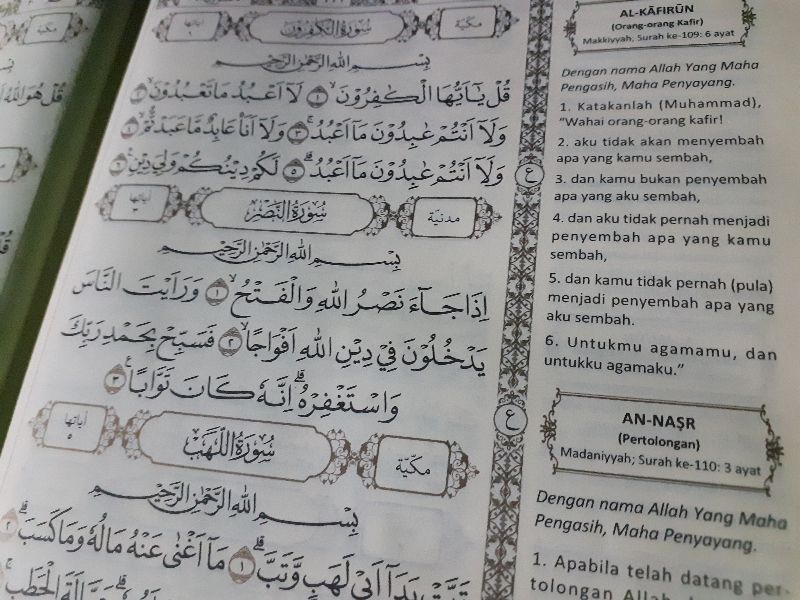 مكيّة
سُوْرَةُ الْكٰفِرُوْنَ
اٰياتها
٦
بِسْمِ اللّٰهِ الرَّحْمٰنِ الرَّحِيْمِ
قُلْ يٰٓاَيُّهَا الْكٰفِرُوْنَۙ ١ لَآ اَعْبُدُ مَا تَعْبُدُوْنَۙ ٢
وَلَآ اَنْتُمْ عٰبِدُوْنَ مَآ اَعْبُدُۚ ٣ وَلَآ اَنَا۠ عَابِدٌ مَّا عَبَدْتُّمْۙ ٤
وَلَآ اَنْتُمْ عٰبِدُوْنَ مَآ اَعْبُدُۗ ٥ لَكُمْ دِيْنُكُمْ وَلِيَ دِيْنِ ٦
مدنيّة
سُوْرَةُ النَّصْرِ
اٰياتها
٣
بِسْمِ اللّٰهِ الرَّحْمٰنِ الرَّحِيْمِ
اِذَا جَاۤءَ نَصْرُ اللّٰهِ وَالْفَتْحُۙ ١ وَرَاَيْتَ النَّاسَ
يَدْخُلُوْنَ فِيْ دِيْنِ اللّٰهِ اَفْوَاجًاۙ ٢ فَسَبِّحْ بِحَمْدِ رَبِّكَ
وَاسْتَغْفِرْهُۗ اِنَّهٗ كَانَ تَوَّابًا ٣
مكيّة
سُوْرَةُ اللَّهَبِ
اٰياتها
٥
بِسْمِ اللّٰهِ الرَّحْمٰنِ الرَّحِيْمِ
تَبَّتْ يَدَآ اَبِيْ لَهَبٍ وَّتَبَّۗ ١ مَآ اَغْنٰى عَنْهُ مَالُهٗ وَمَا كَسَبَۗ ٢
حَمَّالَةَ الْحَطَبِ
AL-KĀFIRŪN
(Orang-orang Kafir)
Makkiyyah, Surah ke-109: 6 ayat
Dengan nama Allah Yang Maha
Pengasih, Maha Penyayang.
1. Katakanlah (Muhammad),
"Wahai orang-orang kafir!
2. aku tidak akan menyembah
apa yang kamu sembah,
3. dan kamu bukan penyembah
apa yang aku sembah,
4. dan aku tidak pernah menjadi
penyembah apa yang kamu
sembah,
5. dan kamu tidak pernah (pula)
menjadi penyembah apa yang
aku sembah.
6. Untukmu agamamu, dan
untukku agamaku."
ع
ع
AN-NAṢR
(Pertolongan)
Madaniyyah; Surah ke-110: 3 ayat
Dengan nama Allah Yang Maha
Pengasih, Maha Penyayang.
1. Apabila telah datang per-
tolongan Allah
مكيّة
قُلْ هُوَ اللّٰهُ